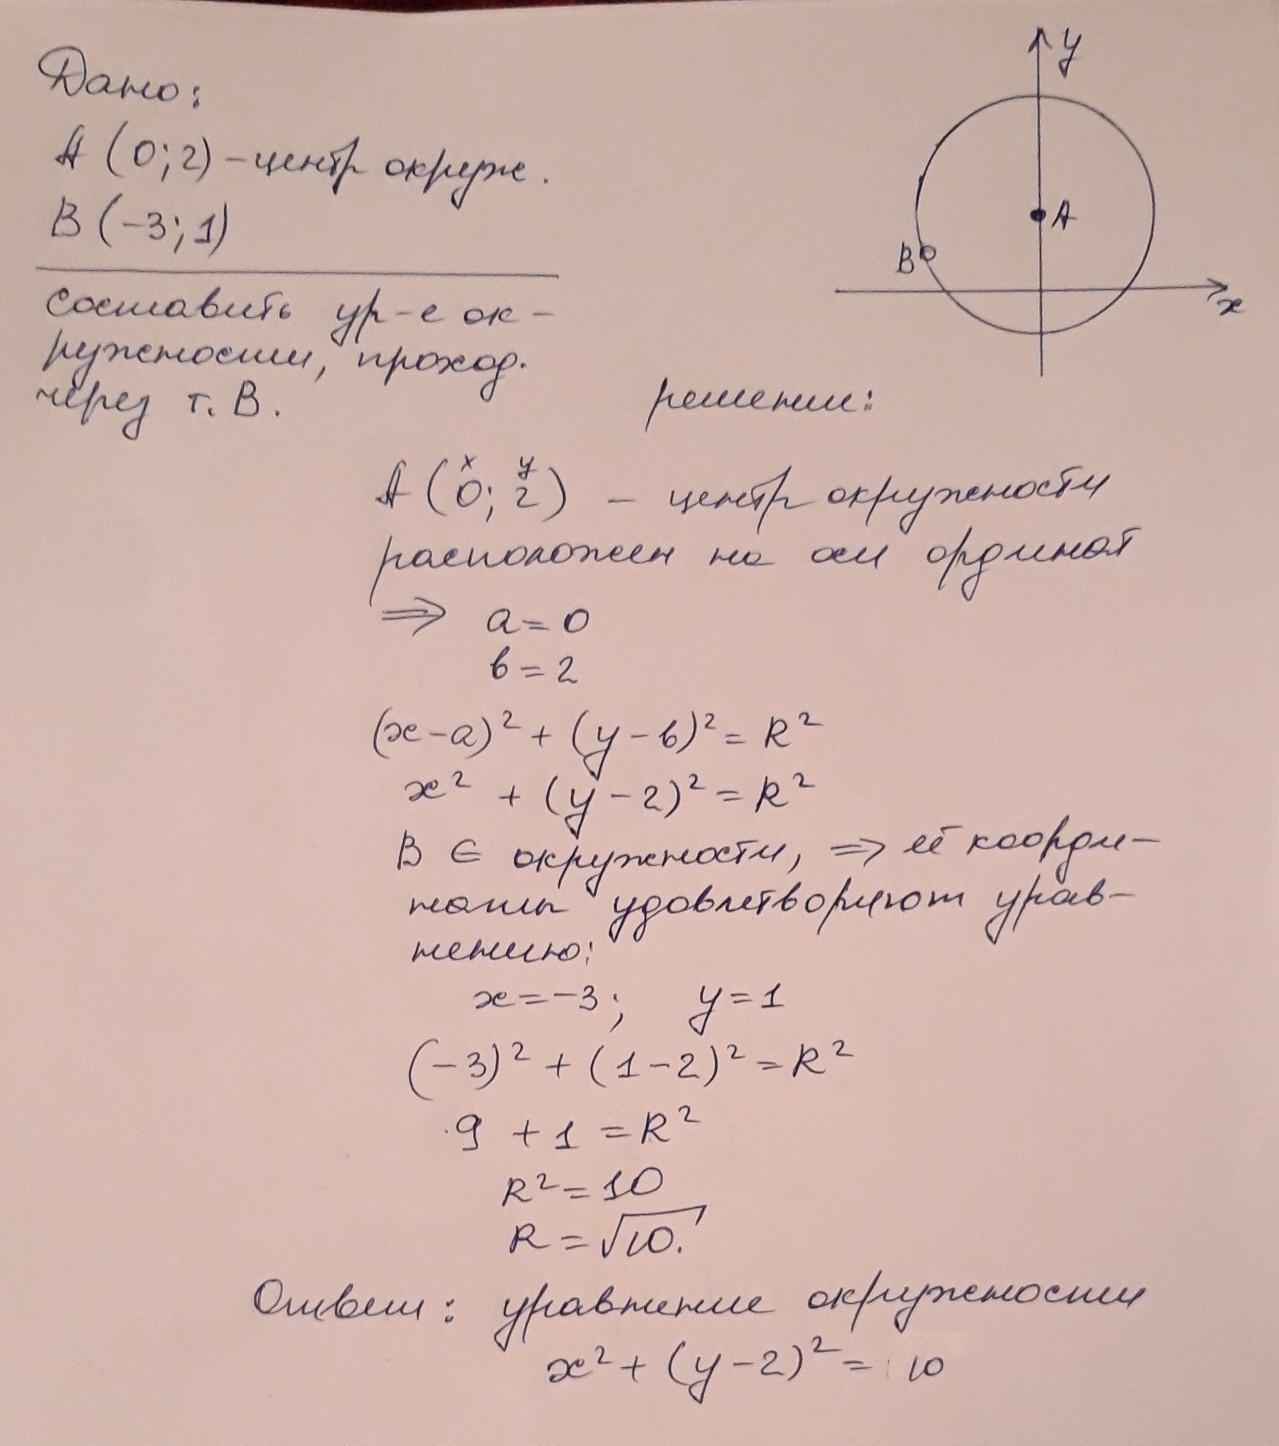 Дано:
y
A (0; 2) – центр окруж.
B (-3; 1)
A
B
x
составить ур-е ок-
ружности, проход.
через т. B.
решение:
x y
A (0; 2) – центр окружности
расположен на оси ординат
⇒ a = 0
b = 2
(x-a)² + (y-b)² = R²
x² + (y-2)² = R²
B ∈ окружности, ⇒ её коорди-
наты удовлетворяют урав-
нению:
x = -3; y = 1
(-3)² + (1-2)² = R²
9 + 1 = R²
R² = 10
R = √10.
Ответ: уравнение окружности
x² + (y-2)² = 10